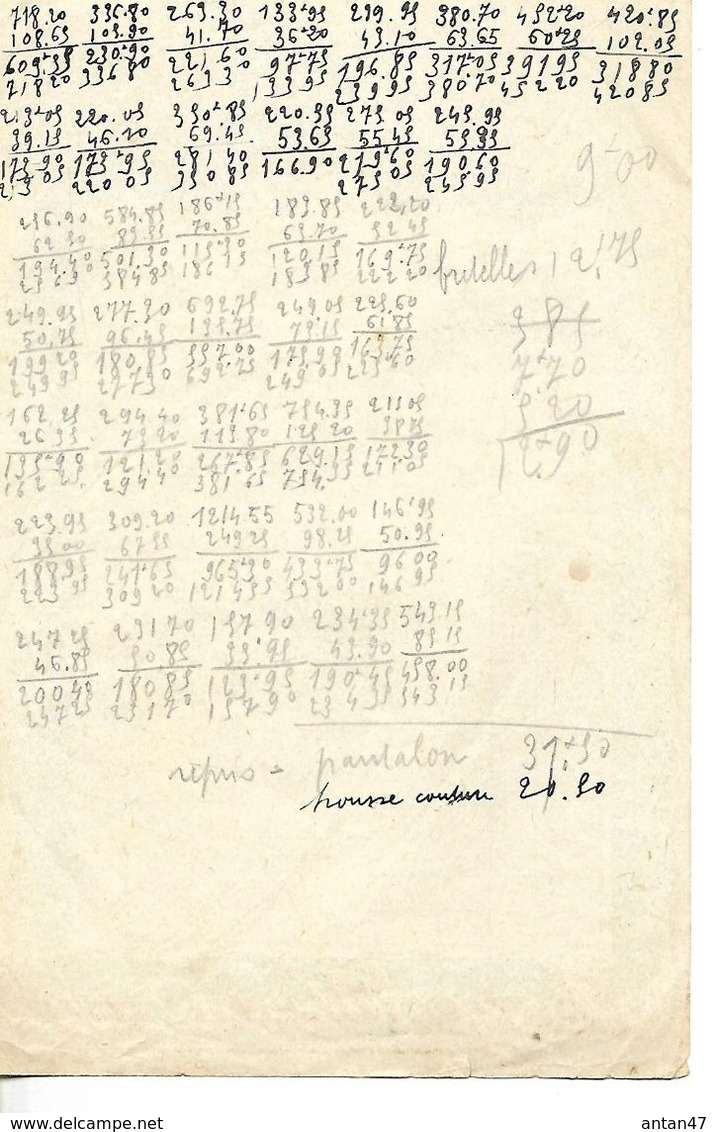 718.20 336.80 263.30 133.95 239.95 380.70 452.20 420.85
108.65 105.90 41.70 36.20 43.10 63.65 60.25 102.05
609.55 230.90 221.60 97.75 196.85 317.05 391.95 318.80
718.20 336.80 263.30 133.95 239.95 380.70 452.20 420.85
213.05 220.05 350.85 220.55 275.05 245.95
39.15 46.10 69.45 53.65 55.45 55.35
173.90 173.95 281.40 166.90 219.60 190.60
213.05 220.05 350.85 275.05 245.95
9.00
256.90 584.85 186.15 189.85 222.20
62.50 83.55 70.85 69.70 52.45
194.40 501.30 115.30 120.15 169.75
584.85 186.15 189.85 222.20
bretelles 12.75
249.95 277.30 692.75 249.05 225.60
50.75 96.45 135.75 75.15 61.85
199.20 180.85 557.00 173.90 163.75
249.95 277.30 692.75 249.05 225.60
385
7.70
5.20
12.90
162.25 294.40 381.65 754.35 211.05
26.35 73.20 113.80 125.20 38.75
135.90 221.20 267.85 629.15 172.30
162.25 294.40 381.65 754. 211.05
223.95 309.20 1214.55 532.00 146.95
35.00 67.55 249.25 98.25 50.95
188.95 241.65 965.30 433.75 96.00
223.95 309.20 1214.55 532.00 146.95
247.25 231.70 157.90 234.35 543.15
46.85 50.85 33.95 43.90 85.15
200.40 180.85 123.95 190.45 458.00
247.25 231.70 157.90 234.35 543.15
repris = pantalon 31.50
housse couture 20.50
antan47